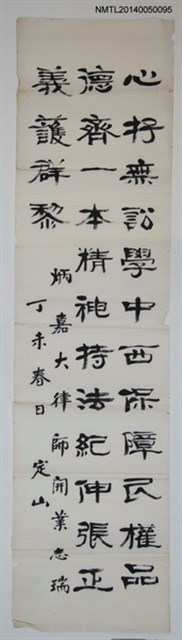 NMTL20140050095
心抒無訟學中西保障民權品
德齊一本精神持法紀伸張正
義護群黎
炳嘉大律師開業志瑞
丁未春日 定山